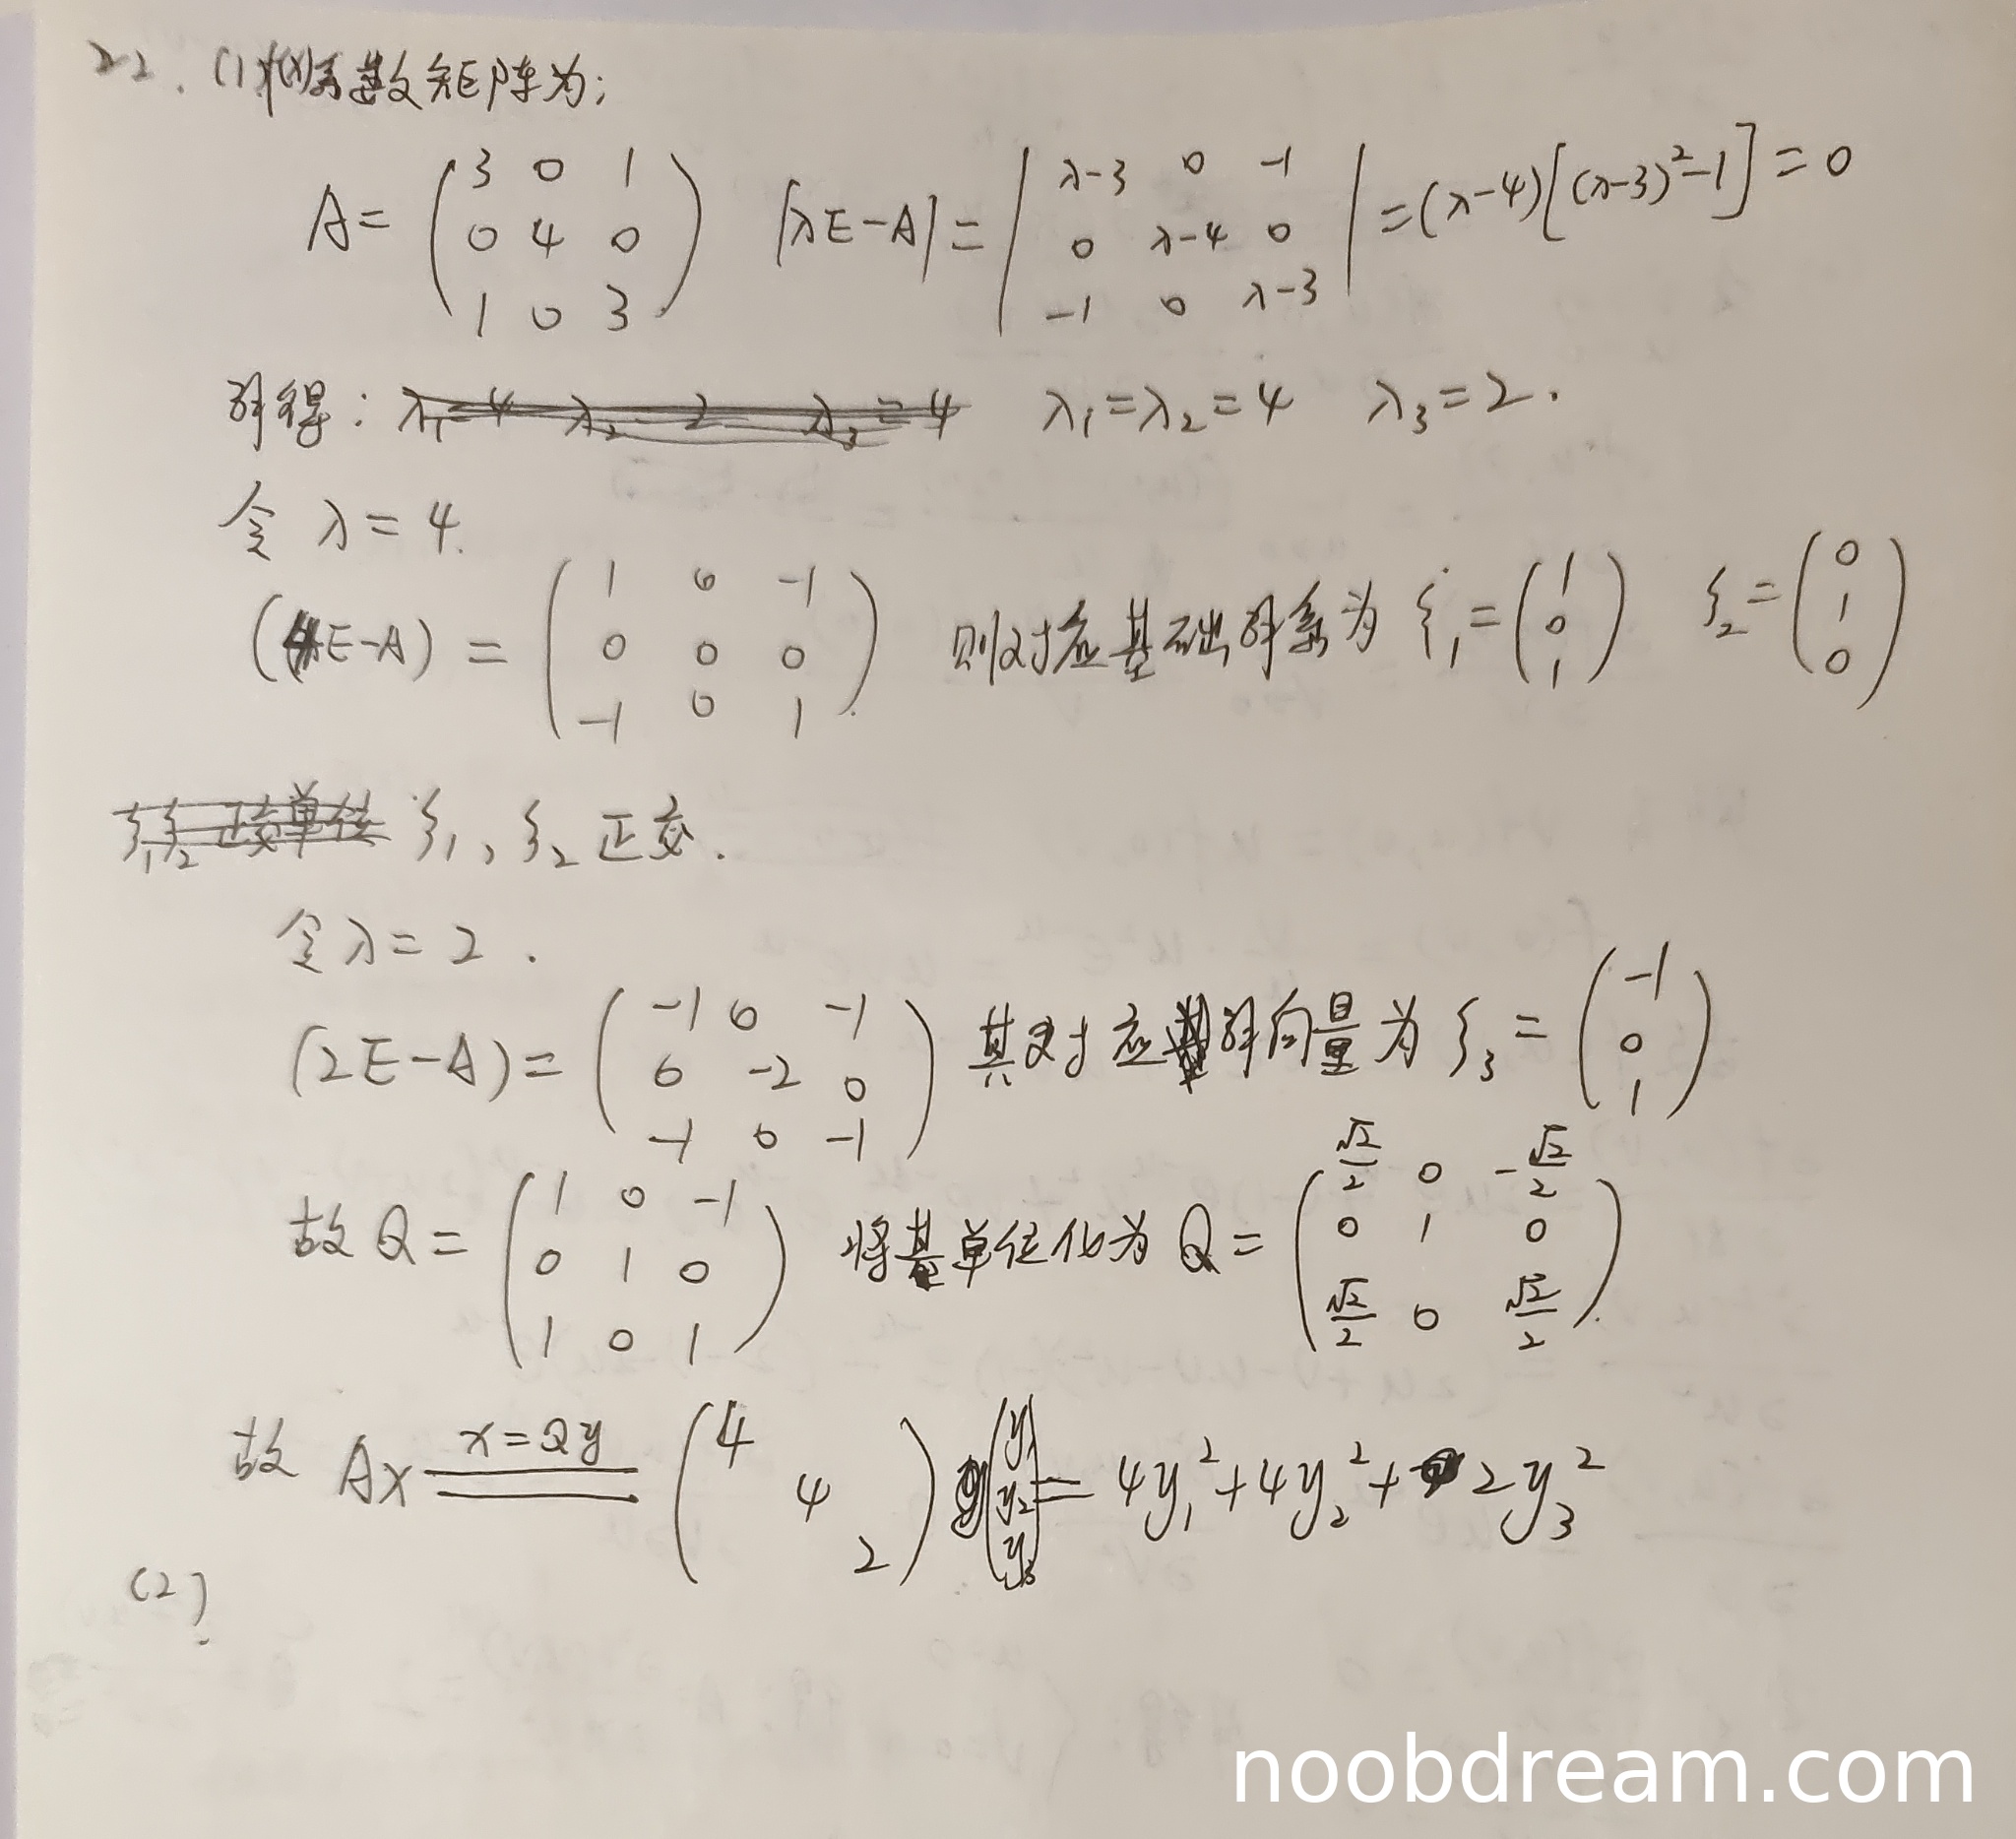 22. (1) f(x)系数矩阵为:
A = (3 0 1; 0 4 0; 1 0 3) |λE-A| = |λ-3 0 -1; 0 λ-4 0; -1 0 λ-3| = (λ-4)[(λ-3)²-1] = 0
解得: λ₁=λ₂=4 λ₃=2.
令 λ=4.
(4E-A) = (1 0 -1; 0 0 0; -1 0 1) 则对应基础解系为 ξ₁ = (1; 0; 1) ξ₂ = (0; 1; 0)
ξ₁, ξ₂ 正交.
令λ=2.
(2E-A) = (-1 0 -1; 0 -2 0; -1 0 -1) 其对应解向量为 ξ₃ = (-1; 0; 1)
故 Q = (1 0 -1; 0 1 0; 1 0 1) 将其单位化为 Q = (√2/2 0 -√2/2; 0 1 0; √2/2 0 √2/2).
故 Ax ==(x=Qy)== (4; 4; 2) (y₁; y₂; y₃) = 4y₁²+4y₂²+2y₃²
(2).
noobdream.com